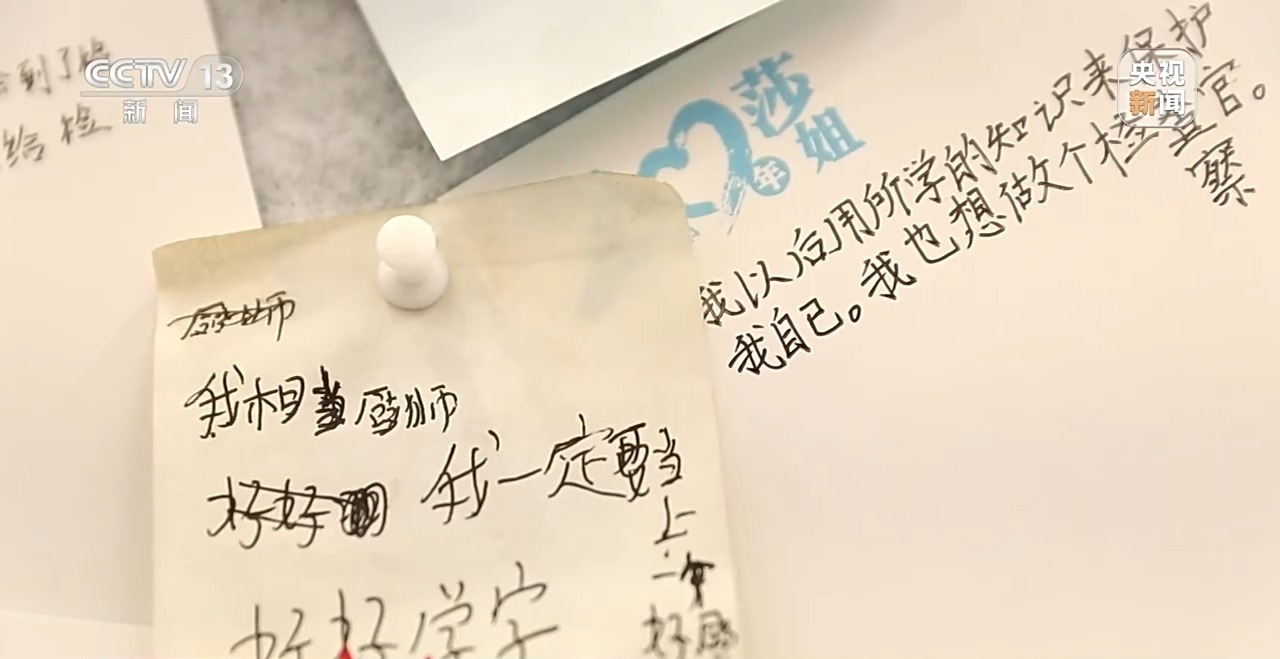 CCTV 13
新闻
央视
新闻
到了检
给检
莎
年
姐
我以后用所学的知识来保护
我自己。我也想做个检查官。
察
厨师
我相当厨师
好好
我一定要当
上
一个
好厨
好好学字